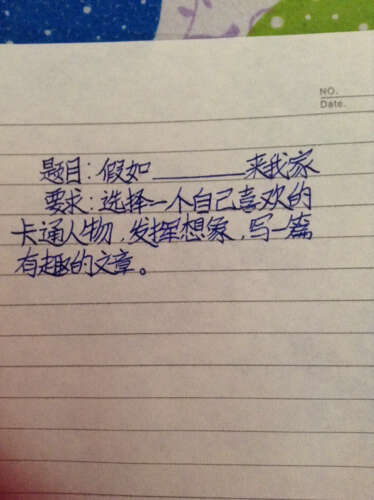 NO.
Date.
题目：假如________来我家
要求：选择一个自己喜欢的
卡通人物，发挥想象，写一篇
有趣的文章。